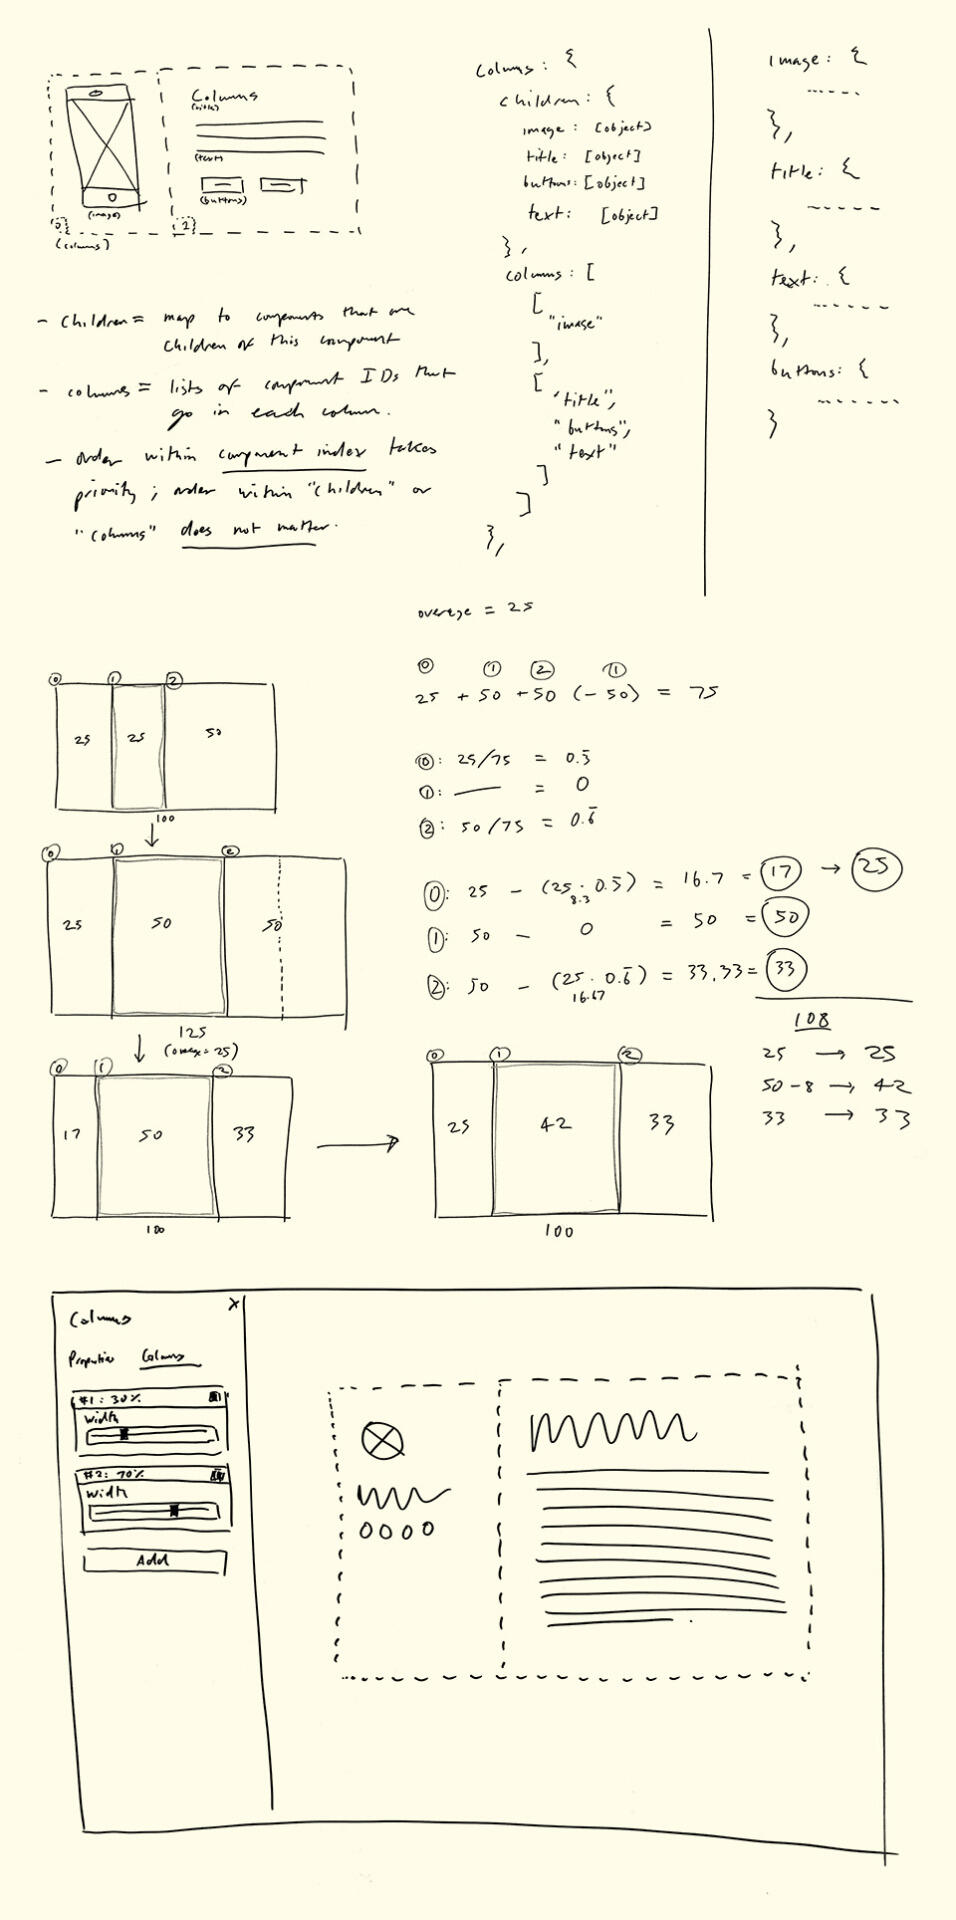 Columns
(title)
(text)
(buttons)
(image)
0
2
(columns)
- children = map to components that are
children of this component
- columns = lists of component IDs that
go in each column.
- order within component index takes
priority; order within "children" or
"columns" does not matter.
columns: {
children: {
image: [object]
title: [object]
buttons: [object]
text: [object]
},
columns: [
[
"image"
],
[
"title",
"buttons",
"text"
]
]
},
image: {
-----
},
title: {
-----
},
text: {
-----
},
buttons: {
------
}
overage = 25
0 1 2 1
25 + 50 + 50 (- 50) = 75
0: 25/75 = 0.3̅
1: — = 0
2: 50/75 = 0.6̅
0: 25 - (25 · 0.3̅) = 16.7 = 17 → 25
8.3
1: 50 - 0 = 50 = 50
2: 50 - (25 · 0.6̅) = 33.33 = 33
16.67
108
25 → 25
50-8 → 42
33 → 33
0 1 2
25 25 50
100
0 1 2
25 50 50
125
0 1 2
17 50 33
100
0 1 2
25 42 33
100
Columns X
Properties Columns
#1: 30%
Width
#2: 70%
Width
Add